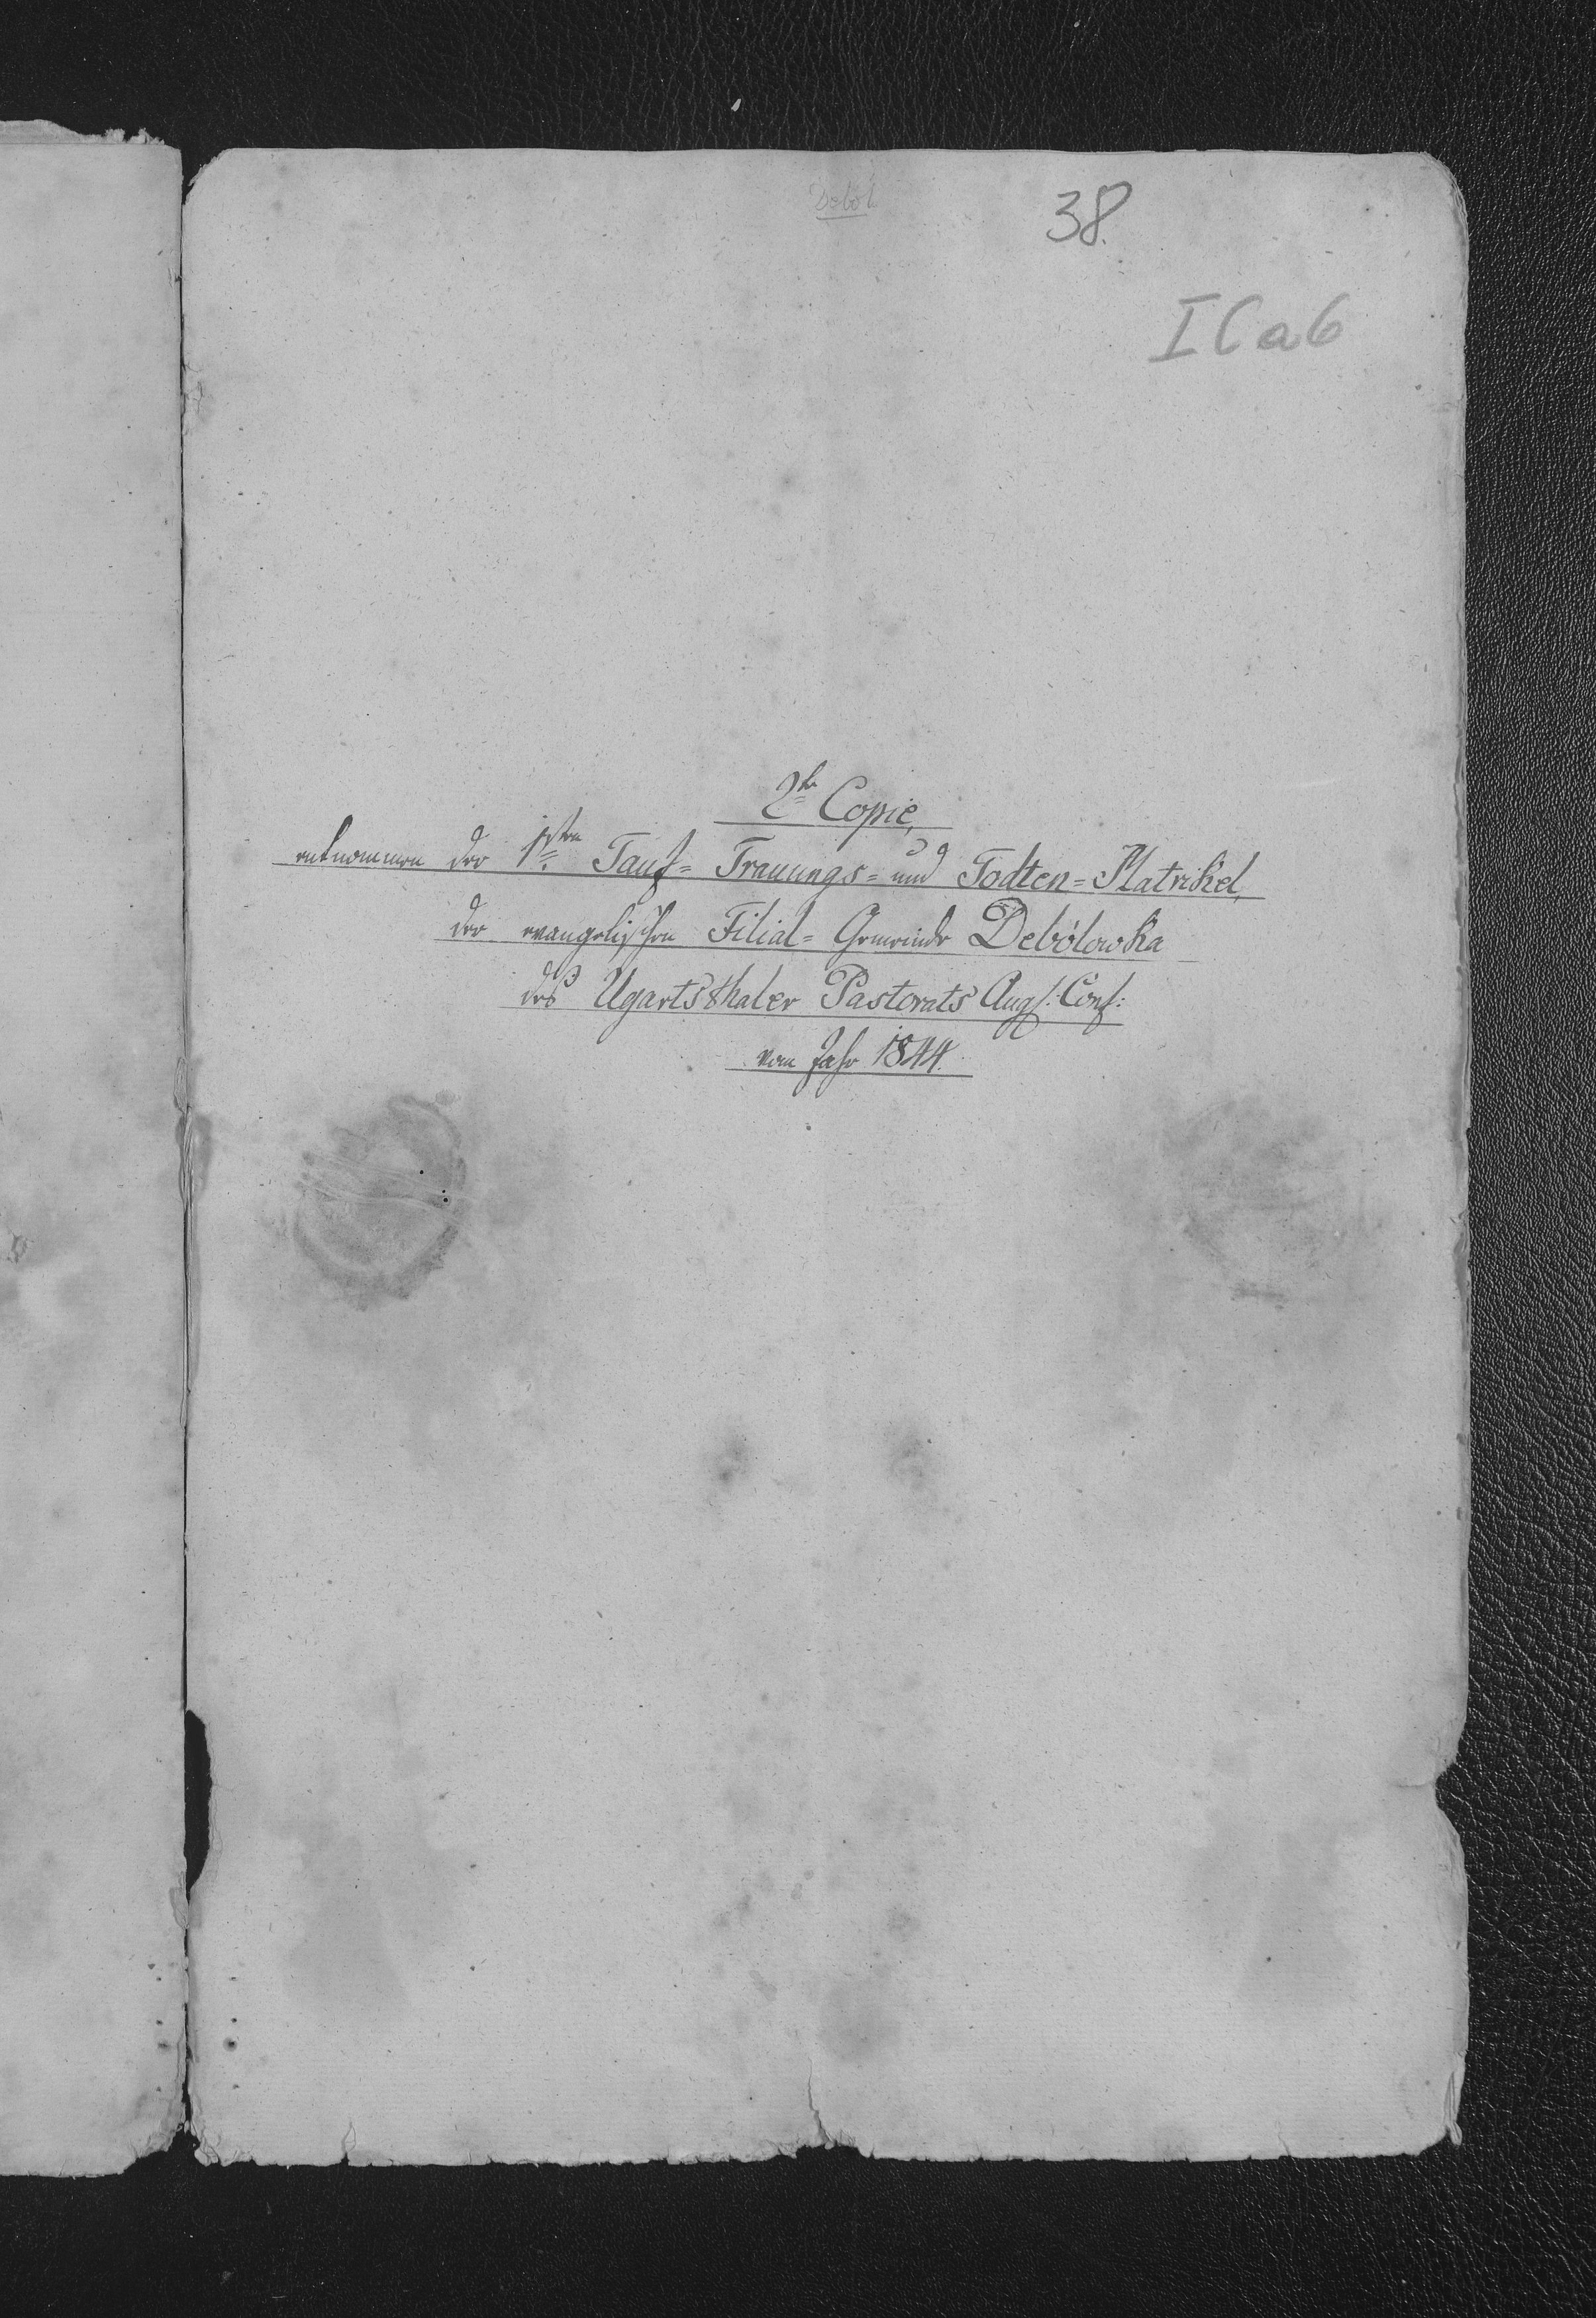 Deból
38.
I C a 6
2te Copie,
entnommen der 1sten Tauf= Trauungs= und Todten=Matrikel,
der evangelischen Filial= Gemeinde Debólowka
des Ugartsthaler Pastorats Augs: Conf:
vom Jahr 1844.